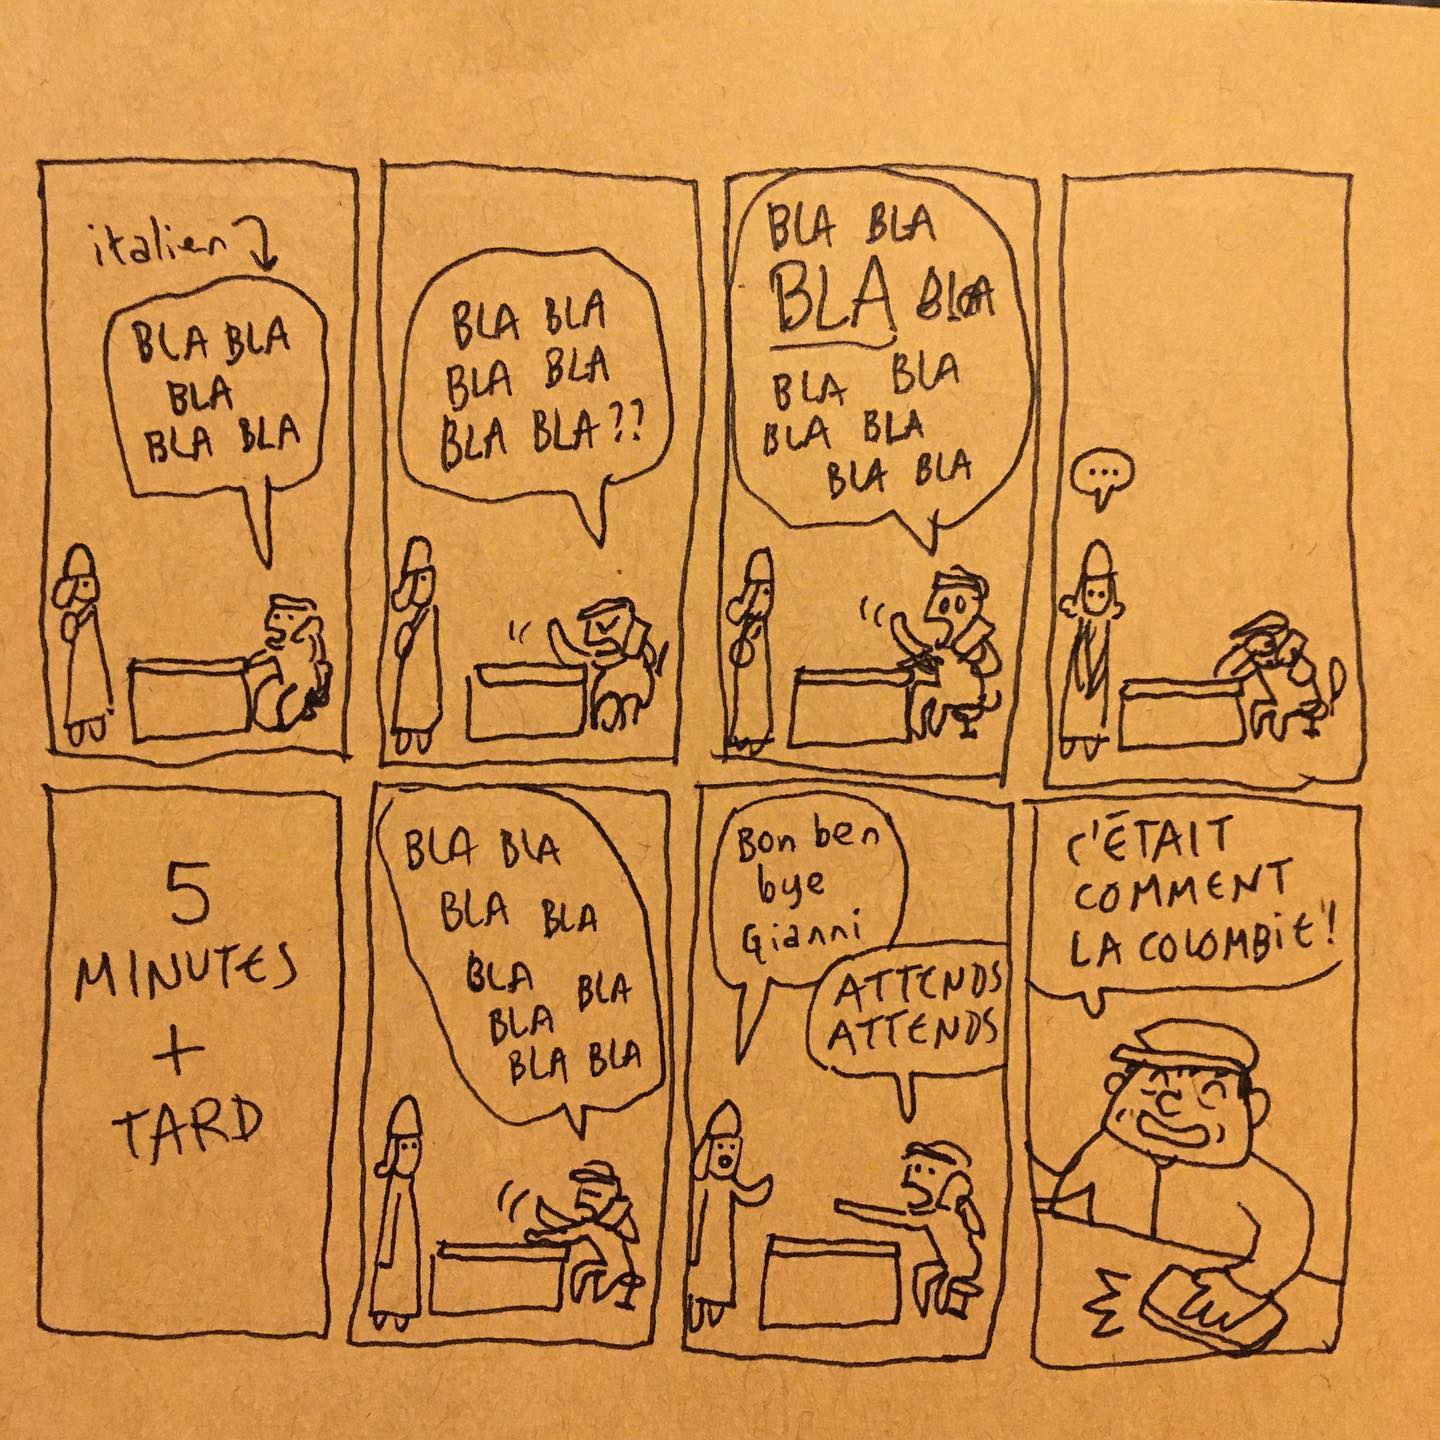 italien
BLA BLA
BLA
BLA BLA
BLA BLA
BLA BLA
BLA BLA??
BLA BLA
BLA BLA
BLA BLA
BLA BLA
BLA BLA
...
5
MINUTES
+
TARD
BLA BLA
BLA BLA
BLA BLA
BLA
BLA BLA
Bon ben
bye
Gianni
ATTENDS
ATTENDS
C'ÉTAIT
COMMENT
LA COLOMBIE!